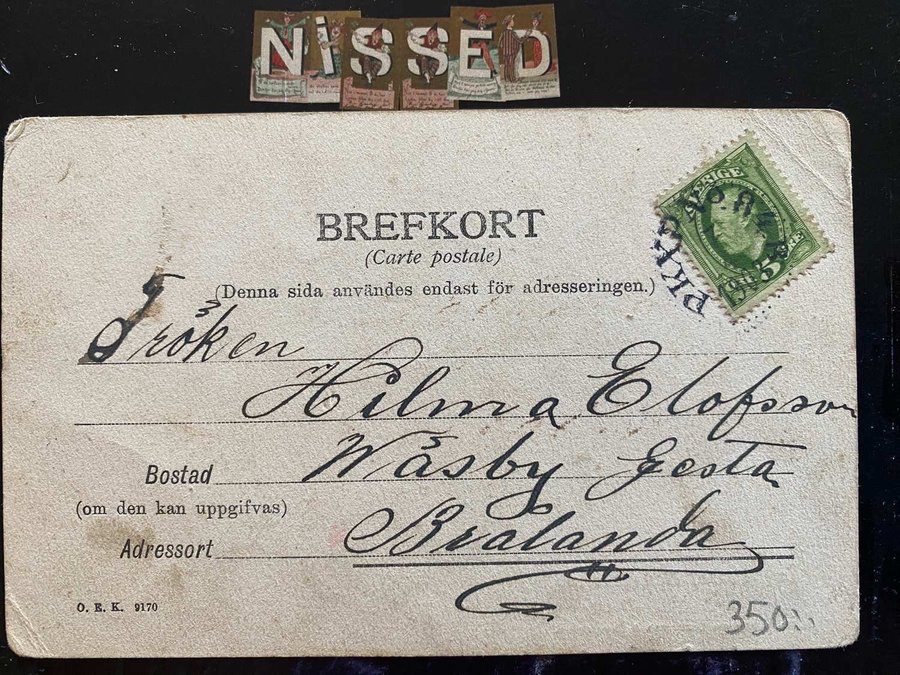 NiSSED
BREFKORT
(Carte postale)
(Denna sida användes endast för adresseringen.)
SVERIGE
5 ÖRE
PKXP No. 84
Fröken
Hilma Elofsson
Wäsby Gesta
Bostad
(om den kan uppgifvas)
Brålanda
Adressort
O. E. K. 9170
350:-